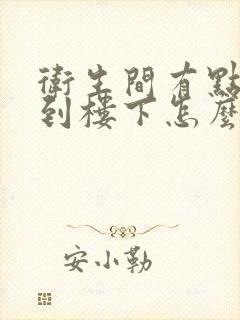 衛生間有點
到樓下怎麼
安小勒